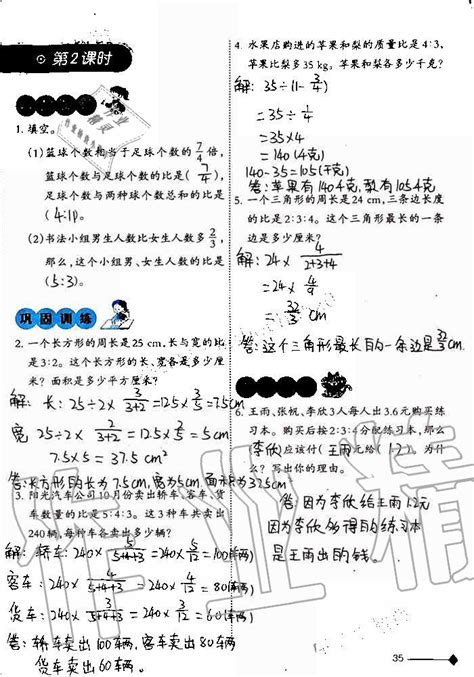 第2课时
1. 填空。
(1)篮球个数相当于足球个数的7/4倍,
篮球个数与足球个数的比是(7/4),
足球个数与两种球个数总和的比是
(4:11)。
(2)书法小组男生人数比女生人数多2/3,
那么,这个小组男、女生人数的比是
(5:3)。
巩固训练
2. 一个长方形的周长是25 cm,长与宽的比
是3:2。这个长方形的长、宽各是多少厘
米? 面积是多少平方厘米?
解: 长: 25÷2×3/(3+2)=12.5×3/5=7.5cm
宽 25÷2×2/(3+2)=12.5×2/5=5cm
7.5×5=37.5cm²
答:长方形的长为7.5cm,宽为5cm,面积为37.5cm²
3. 阳光汽车公司10月份卖出轿车、客车、货
车数量的比是5:4:3。这3种车共卖出
240辆,每种车各卖出多少辆?
解: 轿车:240×5/(5+4+3)=240×5/12=100(辆)
客车: 240×4/(5+4+3)=240×4/12=80(辆)
货车: 240×3/(5+4+3)=240×3/12=60(辆)
答:轿车卖出100辆,客车卖出80辆
货车卖出60辆
4. 水果店购进的苹果和梨的质量比是4:3,
苹果比梨多35 kg。苹果和梨各多少千克?
解: 35÷(1-3/4)
=35÷1/4
=35×4
=140(千克)
140-35=105(千克)
答:苹果有140千克,梨有105千克
5. 一个三角形的周长是24 cm,三条边长度
的比是2:3:4。这个三角形最长的一条
边是多少厘米?
解: 24×4/(2+3+4)
=24×4/9
=32/3 cm
答:这个三角形最长的一条边是32/3cm
6. 王雨、张帆、李欣3人每人出3.6元购买练
习本。购买后按2:3:4分配练习本,那么
(李欣)应该付(王雨)元给(1.2)。为什
么? 写出你的理由。
答: 因为李欣给王雨1.2元
因为李欣多得的练习本
是王雨出的钱。
35
作业精